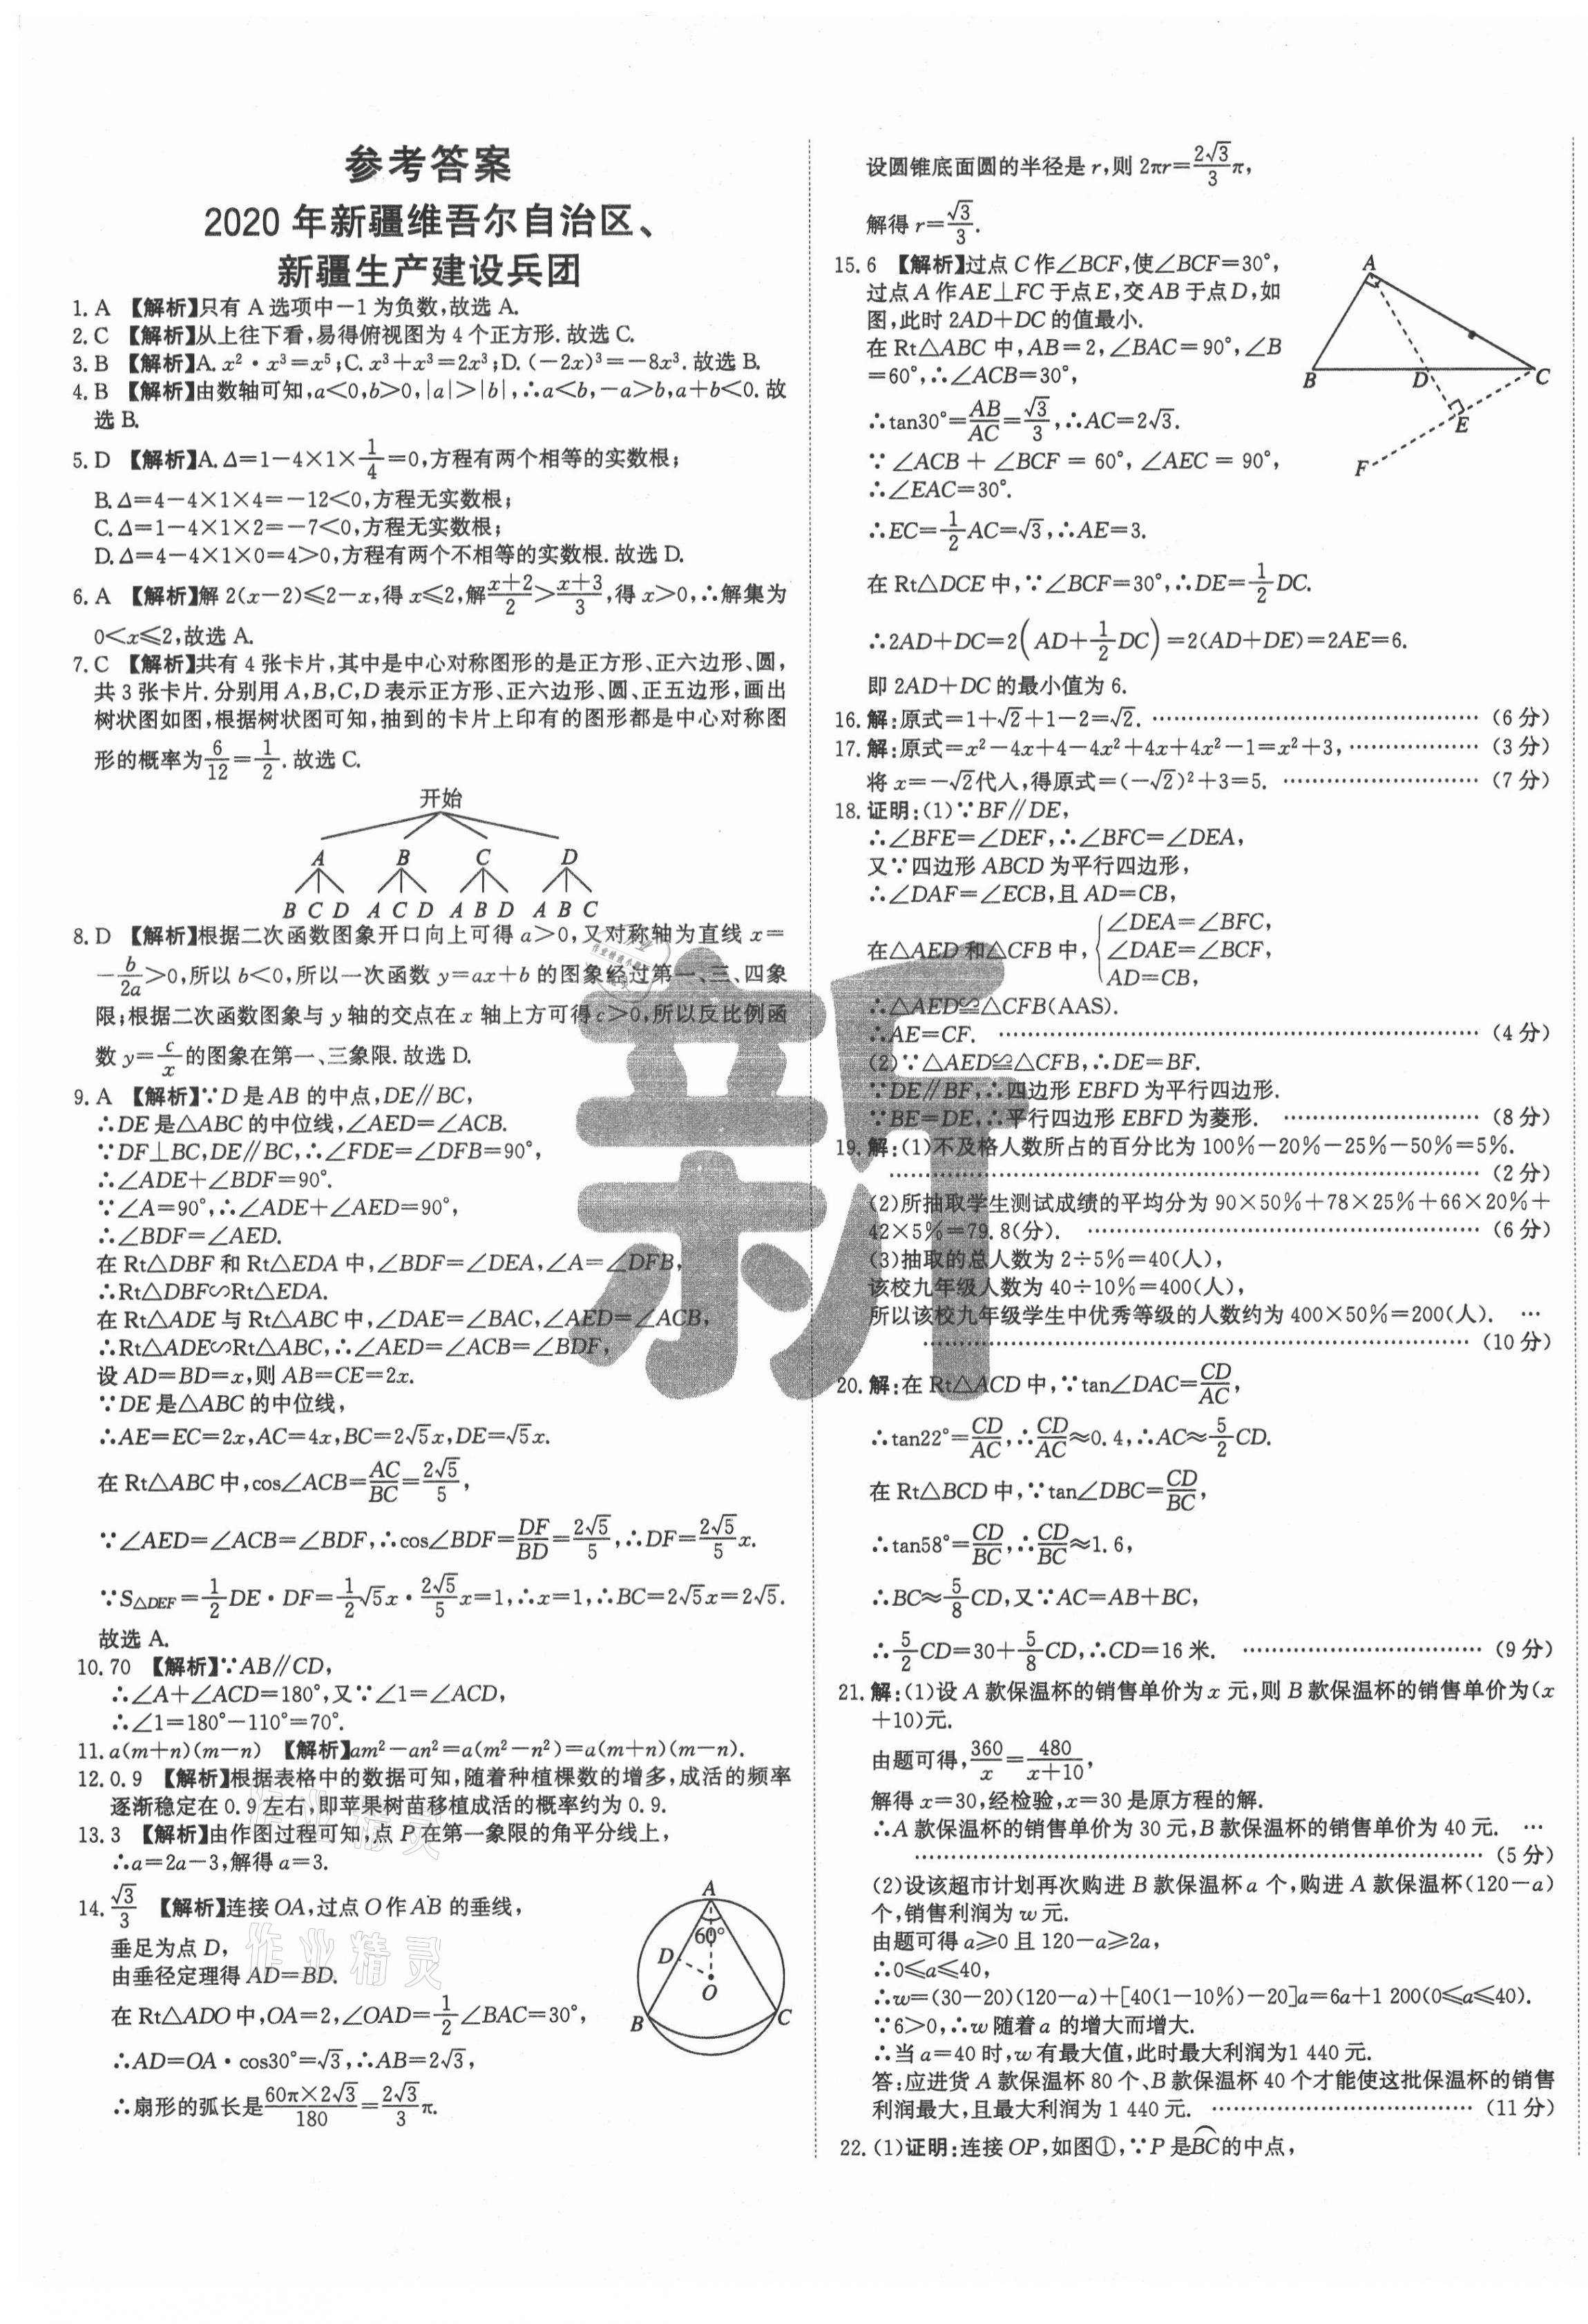 参考答案
2020 年新疆维吾尔自治区、
新疆生产建设兵团
1. A 【解析】只有 A 选项中-1 为负数,故选 A.
2. C 【解析】从上往下看,易得俯视图为 4 个正方形.故选 C.
3. B 【解析】A. x²·x³=x⁵;C. x³+x³=2x³;D. (-2x)³=-8x³.故选 B.
4. B 【解析】由数轴可知,a<0,b>0,|a|>|b|,∴a<b,-a>b,a+b<0.故
选 B.
5. D 【解析】A. Δ=1-4×1×1/4=0,方程有两个相等的实数根;
B. Δ=4-4×1×4=-12<0,方程无实数根;
C. Δ=1-4×1×2=-7<0,方程无实数根;
D. Δ=4-4×1×0=4>0,方程有两个不相等的实数根.故选 D.
6. A 【解析】解 2(x-2)≤2-x,得 x≤2,解(x+2)/2>(x+3)/3,得 x>0,∴解集为
0<x≤2,故选 A.
7. C 【解析】共有 4 张卡片,其中是中心对称图形的是正方形、正六边形、圆,
共 3 张卡片.分别用 A,B,C,D 表示正方形、正六边形、圆、正五边形,画出
树状图如图,根据树状图可知,抽到的卡片上印有的图形都是中心对称图
形的概率为6/12=1/2.故选 C.
开始
A B C D
B C D A C D A B D A B C
8. D 【解析】根据二次函数图象开口向上可得 a>0,又对称轴为直线 x=
-b/2a>0,所以 b<0,所以一次函数 y=ax+b 的图象经过第一、三、四象
限;根据二次函数图象与 y 轴的交点在 x 轴上方可得 c>0,所以反比例函
数 y=c/x的图象在第一、三象限.故选 D.
9. A 【解析】∵D 是 AB 的中点,DE∥BC,
∴DE 是△ABC 的中位线,∠AED=∠ACB.
∵DF⊥BC,DE∥BC,∴∠FDE=∠DFB=90°,
∴∠ADE+∠BDF=90°.
∵∠A=90°,∴∠ADE+∠AED=90°,
∴∠BDF=∠AED.
在 Rt△DBF 和 Rt△EDA 中,∠BDF=∠DEA,∠A=∠DFB,
∴Rt△DBF∽Rt△EDA.
在 Rt△ADE 与 Rt△ABC 中,∠DAE=∠BAC,∠AED=∠ACB,
∴Rt△ADE∽Rt△ABC,∴∠AED=∠ACB=∠BDF,
设 AD=BD=x,则 AB=CE=2x.
∵DE 是△ABC 的中位线,
∴AE=EC=2x,AC=4x,BC=2√5x,DE=√5x.
在 Rt△ABC 中,cos∠ACB=AC/BC=2√5/5,
∵∠AED=∠ACB=∠BDF,∴cos∠BDF=DF/BD=2√5/5,∴DF=2√5/5x.
∵S△DEF=1/2DE·DF=1/2√5x·2√5/5x=1,∴x=1,∴BC=2√5x=2√5.
故选 A.
10. 70 【解析】∵AB∥CD,
∴∠A+∠ACD=180°,又∵∠1=∠ACD,
∴∠1=180°-110°=70°.
11. a(m+n)(m-n) 【解析】am²-an²=a(m²-n²)=a(m+n)(m-n).
12. 0.9 【解析】根据表格中的数据可知,随着种植棵数的增多,成活的频率
逐渐稳定在 0.9 左右,即苹果树苗移植成活的概率约为 0.9.
13. 3 【解析】由作图过程可知,点 P 在第一象限的角平分线上,
∴a=2a-3,解得 a=3.
14. √3/3 【解析】连接 OA,过点 O 作 AB 的垂线,
垂足为点 D,
由垂径定理得 AD=BD.
在 Rt△ADO 中,OA=2,∠OAD=1/2∠BAC=30°,
∴AD=OA·cos30°=√3,∴AB=2√3,
∴扇形的弧长是60π×2√3/180=2√3/3π.
A
60°
D
O
B
C
作业精灵
作业精灵
设圆锥底面圆的半径是 r,则 2πr=2√3/3π,
解得 r=√3/3.
15. 6 【解析】过点 C 作∠BCF,使∠BCF=30°,
过点 A 作 AE⊥FC 于点 E,交 AB 于点 D,如
图,此时 2AD+DC 的值最小.
在 Rt△ABC 中,AB=2,∠BAC=90°,∠B
=60°,∴∠ACB=30°,
∴tan30°=AB/AC=√3/3,∴AC=2√3.
∵∠ACB+∠BCF=60°,∠AEC=90°,
∴∠EAC=30°.
∴EC=1/2AC=√3,∴AE=3.
A
B
D
C
E
F
在 Rt△DCE 中,∵∠BCF=30°,∴DE=1/2DC.
∴2AD+DC=2(AD+1/2DC)=2(AD+DE)=2AE=6.
即 2AD+DC 的最小值为 6.
16. 解:原式=1+√2+1-2=√2. …… (6 分)
17. 解:原式=x²-4x+4-4x²+4x+4x²-1=x²+3, …… (3 分)
将 x=-√2代人,得原式=(-√2)²+3=5. …… (7 分)
18. 证明:(1)∵BF∥DE,
∴∠BFE=∠DEF,∴∠BFC=∠DEA,
又∵四边形 ABCD 为平行四边形,
∴∠DAF=∠ECB,且 AD=CB,
在△AED 和△CFB 中,{∠DEA=∠BFC,
∠DAE=∠BCF,
AD=CB,
∴△AED≌△CFB(AAS).
∴AE=CF. …… (4 分)
(2)∵△AED≌△CFB,∴DE=BF.
∵DE∥BF,∴四边形 EBFD 为平行四边形.
∵BE=DE,∴平行四边形 EBFD 为菱形. …… (8 分)
19. 解:(1)不及格人数所占的百分比为 100%-20%-25%-50%=5%.
…… (2 分)
(2)所抽取学生测试成绩的平均分为 90×50%+78×25%+66×20%+
42×5%=79.8(分). …… (6 分)
(3)抽取的总人数为 2÷5%=40(人),
该校九年级人数为 40÷10%=400(人),
所以该校九年级学生中优秀等级的人数约为 400×50%=200(人). …
…… (10 分)
20. 解:在 Rt△ACD 中,∵tan∠DAC=CD/AC,
∴tan22°=CD/AC,∴CD/AC≈0.4,∴AC≈5/2CD.
在 Rt△BCD 中,∵tan∠DBC=CD/BC,
∴tan58°=CD/BC,∴CD/BC≈1.6,
∴BC≈5/8CD,又∵AC=AB+BC,
∴5/2CD=30+5/8CD,∴CD=16 米. …… (9 分)
21. 解:(1)设 A 款保温杯的销售单价为 x 元,则 B 款保温杯的销售单价为(x
+10)元.
由题可得,360/x=480/(x+10),
解得 x=30,经检验,x=30 是原方程的解.
∴A 款保温杯的销售单价为 30 元,B 款保温杯的销售单价为 40 元. …
…… (5 分)
(2)设该超市计划再次购进 B 款保温杯 a 个,购进 A 款保温杯(120-a)
个,销售利润为 w 元.
由题可得 a≥0 且 120-a≥2a,
∴0≤a≤40,
∴w=(30-20)(120-a)+[40(1-10%)-20]a=6a+1 200(0≤a≤40).
∵6>0,∴w 随着 a 的增大而增大.
∴当 a=40 时,w 有最大值,此时最大利润为1 440 元.
答:应进货 A 款保温杯 80 个、B 款保温杯 40 个才能使这批保温杯的销售
利润最大,且最大利润为 1 440 元. …… (11 分)
22. (1)证明:连接 OP,如图①,∵P 是BC的中点,
新